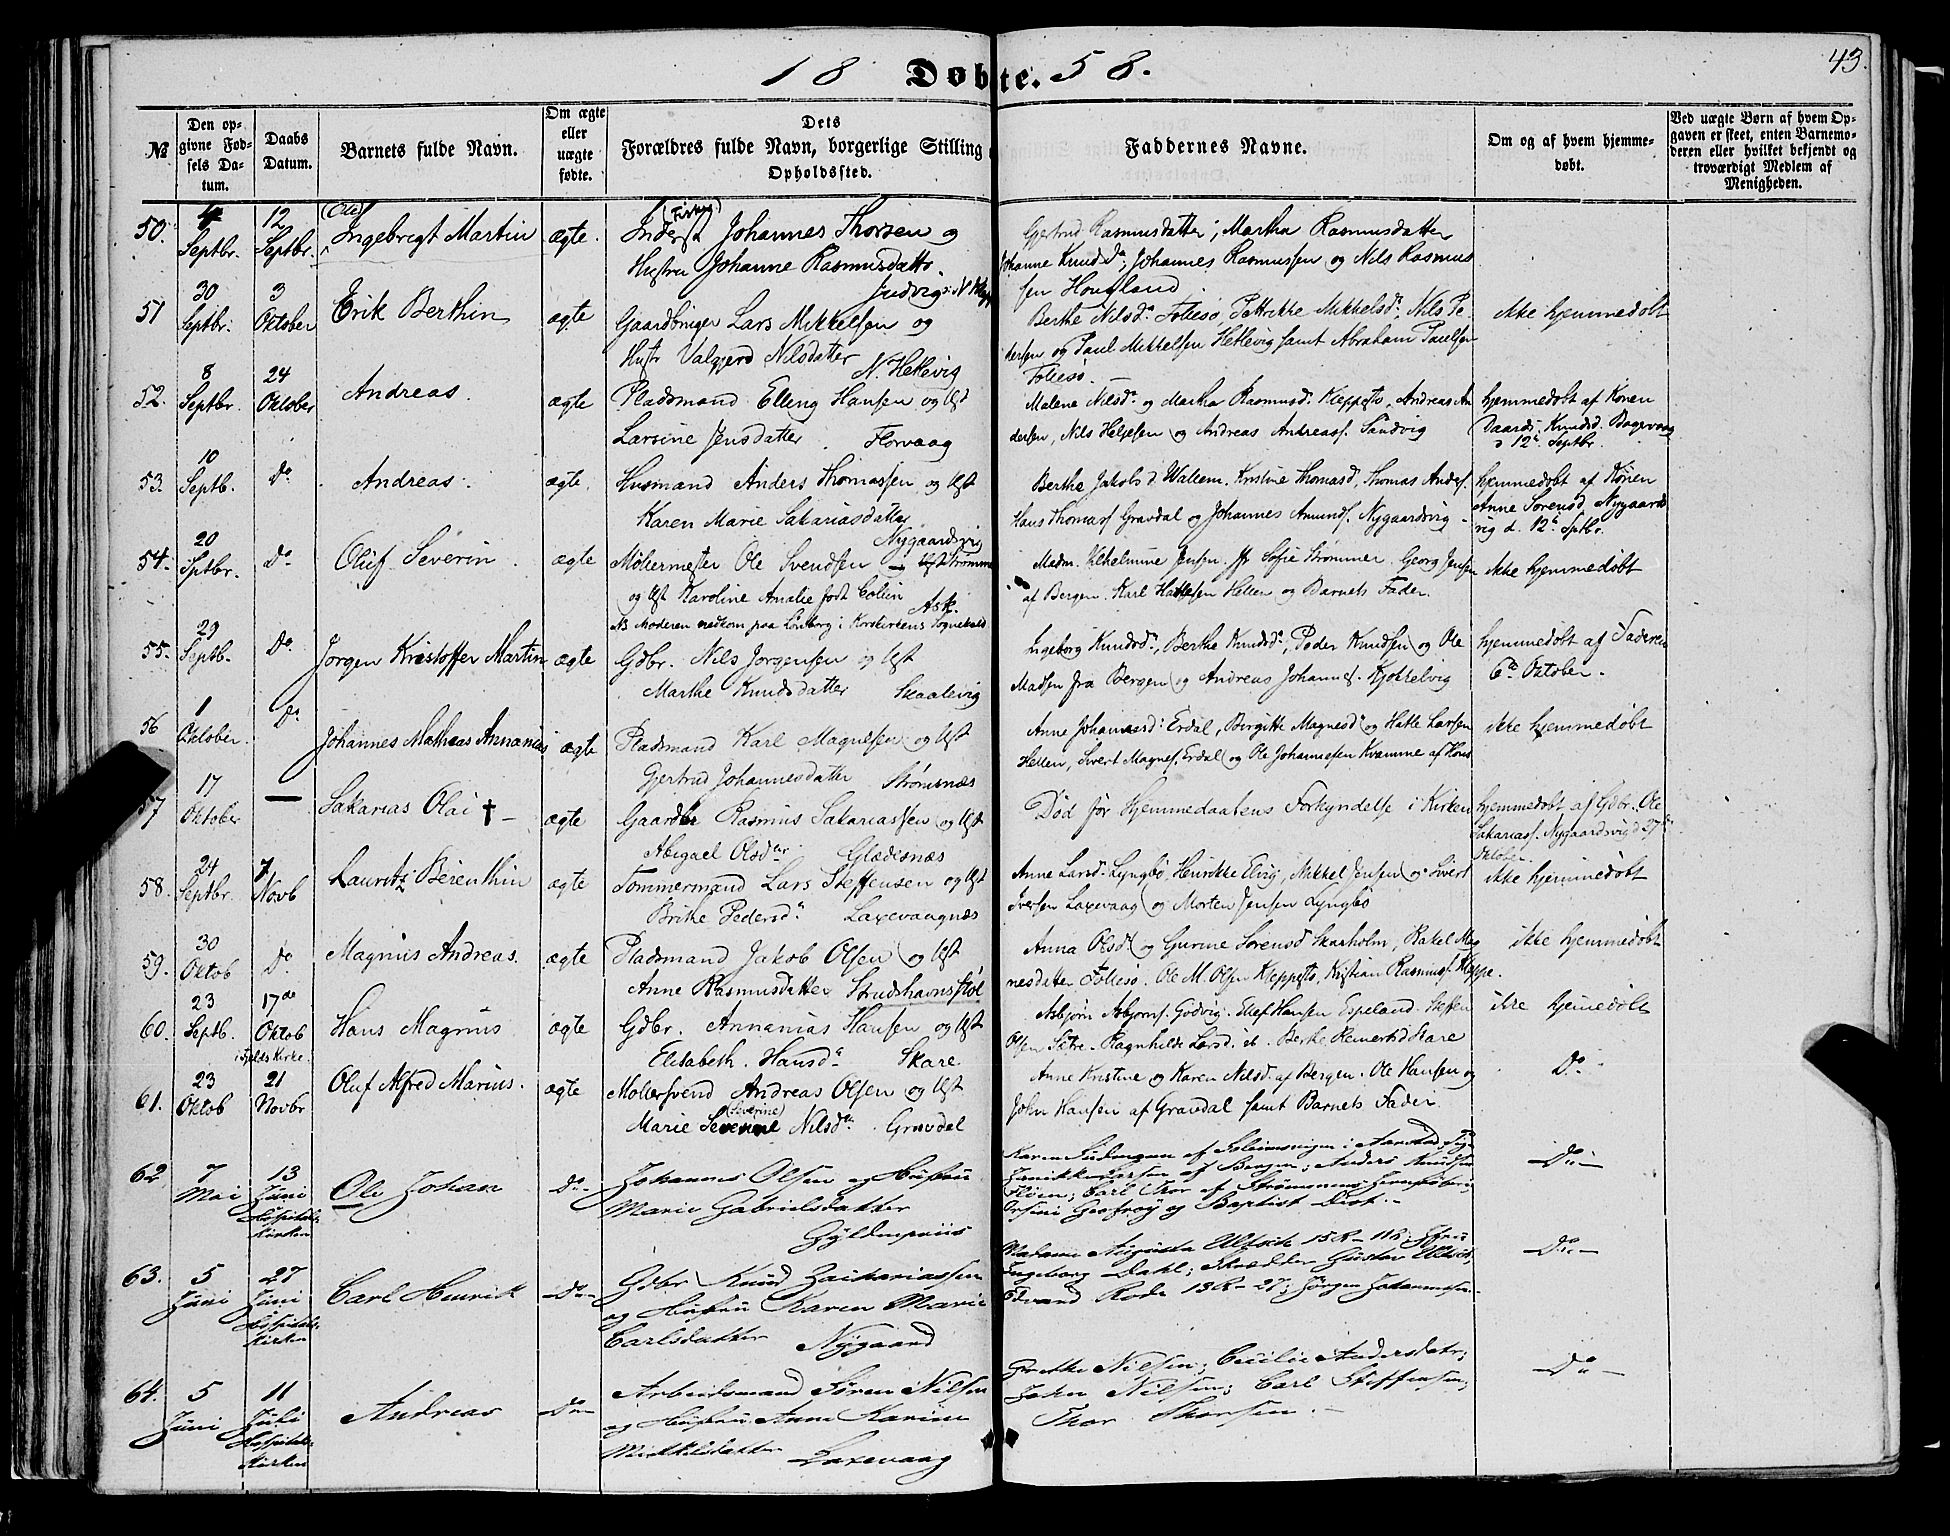 18 Døbte. 58.
43.
№
Den opgivne Fødsels Datum.
Daabs Datum.
Barnets fulde Navn.
Om ægte eller uægte fødte.
Dets Forældres fulde Navn, borgerlige Stilling Opholdssted.
Faddernes Navne.
Om og af hvem hjemmedøbt.
Ved uægte Børn af hvem Opgaven er skeet, enten Barnemoderen eller hvilket bekjendt og troværdigt Medlem af Menigheden.
50. 4 Septbr. 12 Septbr. (Ole) Ingebrigt Martin ægte.
Inderst Johannes Thorsen og
Hustru Johanne Rasmusdatter
Gjertrud Rasmusdatter; Martha Rasmusdatter
Johanne Knudsd; Johannes Rasmussen og Nils Rasmus
sen Hougland.
51 30 Septbr. 3 Oktober Erik Berthin ægte
Gaardbruger Lars Mikkelsen og
Hustr Valgjerd Nilsdatter N. Hetlevig
Berthe Nilsd. Follesø Mikkelsd. Nils Pe
dersen og Paul Mikkelsen Hetlevig samt Abraham Paulsen
Follesø.
ikke hjemmedøbt
52. 8 Septbr. 24 Oktober Andreas. ægte
Pladsmand Elling Hansen og Hst
Larsine Jensdatter. Florvaag
Malene Nilsd. og Martha Rasmusd. Kleppestø, Andreas An
dersen, Nils Heljesen og Andreas Andreass. Sandvig
hjemmedøbt af Konen
Knudsd.
d 12te Septbr.
53. 10 Septb. Do Andreas. ægte.
Husmand Anders Thomassen og Hst
Karen Marie Sakariasdatter
Nygaardsvig
Berthe Jakobsd. Wallem. Kristine Thomasd, Thomas Anders.
Hans Thomass. Gravdal og Johannes Amunds. Nygaardsvig
hjemmedøbt af Konen
Anne Sørensd Nygaards
vig d. 12te Sptbr.
54. 20 Sptbr. Do Oluf Severin. ægte
Møllermester Ole Svendsen
og Hst Karoline Amalie født Collin
Ask.
NB Moderen nedkom paa i Korskirkens Sognekald
Madm. Vilhelmine Jensen. Sofie Strømmer. Georg Jensen
af Bergen. Karl Hellen og Barnets Fader.
ikke hjemmedøbt
55. 29 Septb. Do Jørgen Kristoffer Martin ægte
Gdbr. Nils Jørgensen og Hst
Marthe Knudsdatter Skaalevig
Ingeborg Knudsd., Berthe Knudsd., Peder Knudsen og Ole
Madsen fra Bergen og Andreas Johannes. Kjøkkelvig
hjemmedøbt af Faderen
6te Oktober.
56 1 Oktober. Do Johannes Mathias Annanias ægte
Pladsmand Karl Magnesen og Hst
Gjertrud Johannesdatter Strømsnæs
Anne Johannesd. Erdal, Birgitte Magnesd. og Hatle Larsen
Hellen, Sivert Magnes. Erdal og Ole Johannessen Kvamme af Hous
ikke hjemmedøbt
57 17 Oktober — Sakarias Olai † – ægte
Gaardbr Rasmus Sakariassen og Hst
Abigael Olsdtr. Glædesnæs
Død før Hjemmedaabens Forkyndelse i Kirken
hjemmedøbt af Gdbr. Ole
Sakarias. Nygaardsvig d 27
Oktober.
58. 24 Septbr. 7 Novb Lauritz Berenthin ægte
Tømmermand Lars Steffensen og Hst
Brithe Pedersd. Laxevaagnæs
Anne Larsd. Lyngbø, Henrikke Elvig, Mikkel Jensen og Sivert
Iversen Laxevaag og Morten Jensen Lyngbø
ikke hjemmedøbt
59. 30 Oktob Do Magnus Andreas. ægte
Pladsmand Jakob Olsen og Hst
Anne Rasmusdatter Strudshavnsstøl
Anna Olsd og Gurine Sørensd Skarholm, Rakel Mag
nesdatter Follesø. Ole M. Olsen Kleppestø, Kristian Rasmus. Kleppe.
ikke hjemmedøbt
60. 23 Septb. 17de Oktob Kirke. Hans Magnus ægte
Gdbr. Annanias Hansen og Hst
Elisabeth. Hansd. Skare
Asbjørn Asbjørns. Godvig. Elef Hansen Espeland. Steffen
Olsen Sætre. Ragnhilde Larsd. Berthe Reinertsd Skare
ikke hjemmedøbt
61. 23 Oktob 21 Novbr Oluf Alfred Marius. ægte
Møllersvend Andreas Olsen og Hst
Marie (Severine) Nilsd. Gravdal
Anne Kristine og Karen Nilsd. af Bergen. Ole Hansen og
John Hansen af Gravdal samt Barnets Fader
Do
62 7 Mai 13 Juni Hospitals-Kirken Ole Johan Do-
Johannes Olsen og Hustru
Marie Gabrielsdatter
Gyldenpriis
Larsen af Bergen; Anders Knudsen
Carl Thor af
og Baptist
Do-
63. 5 Juni 27 Juni Hospitals-Kirken Carl Henrik Do-
Gdbr Knud Zachariassen
og Hustru Karen Marie
Carlsdatter Nygaard
Madame Augusta Ultsch 15 R- 116;
Ingeborg Dahl; Skrædder Gustav Ultsch,
Edvard Rode 13 R- 27; Jørgen Johannesen
Do-
64. 5 Juni 11 Juli Hospitals-Kirken Andreas Do-
Arbeidsmand Søren Nilsen
og Hustru Anne Karine
Mikkelsdatter Laxevaag
Grethe Nilsen; Cecilie Andersdatr;
John Nilsen; Carl Steffensen;
Thor Thorsen.
Do-